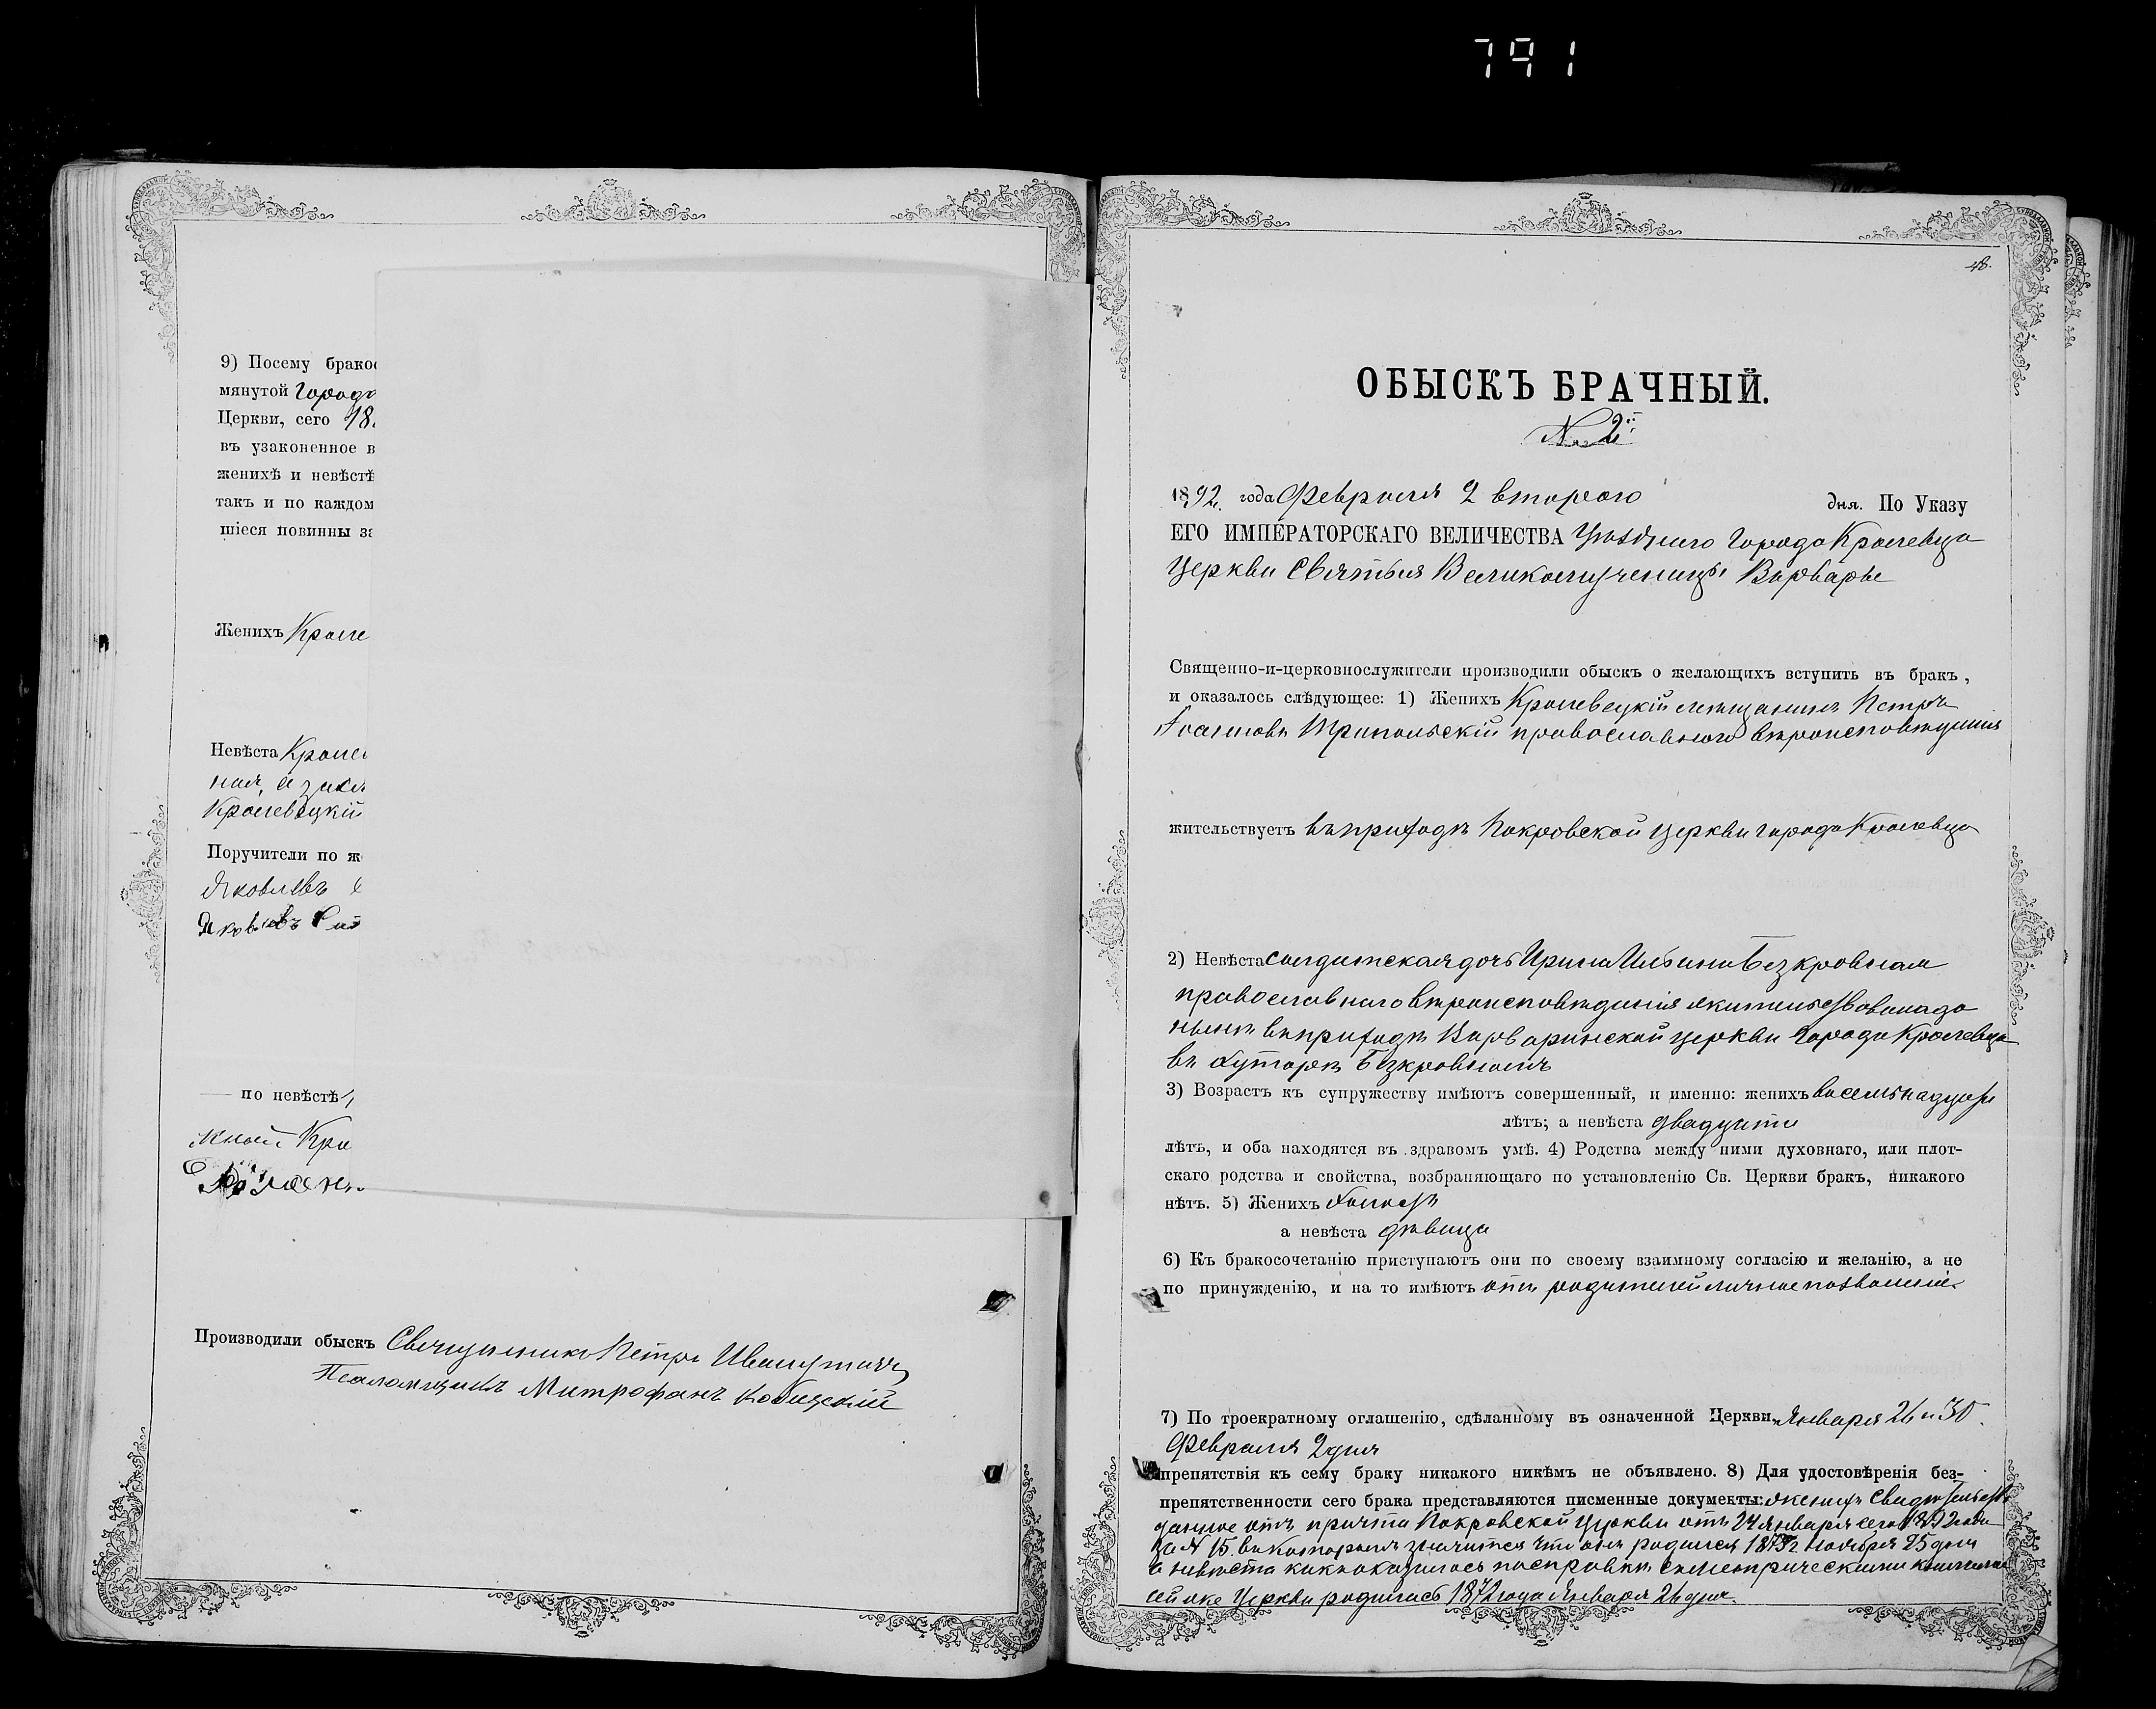 791
9) Посему брако
мянутой Город
Церкви, сего 18
въ узаконенное в
женихѣ и невѣстѣ
такъ и по каждом
шіеся повинны за
Женихъ Кроле
Невѣста Кролев
ная, а за
Кролевецкій
Поручители по ж
Яковлевъ
Яковлевъ
по невѣстѣ
Кро
Производили обыскъ Священникъ Петръ
Псаломщикъ Митрофанъ
48.
ОБЫСКЪ БРАЧНЫЙ.
№ 2й
1892 года Февраля 2 втораго дня. По Указу
ЕГО ИМПЕРАТОРСКАГО ВЕЛИЧЕСТВА Уѣзднаго Города Кролевца
Церкви Святыя Великомученицы Варвары
Священно-и-церковнослужители производили обыскъ о желающихъ вступить въ бракъ,
и оказалось слѣдующее: 1) Женихъ Кролевецкій мѣщанинъ Петръ
Іоанновъ Трипольскій православнаго вѣроисповѣданія
жительствуетъ въ приходѣ Покровской церкви города Кролевца
2) Невѣста солдатская дочь Ирина Ильина Безкровная
православнаго вѣроисповѣданія жительствовала до
нынѣ въ приходѣ Варваринской церкви города Кролевца
въ хуторѣ Безкровномъ
3) Возрастъ къ супружеству имѣютъ совершенный, и именно: женихъ восемьнадцать
лѣтъ; а невѣста двадцати
лѣтъ, и оба находятся въ здравомъ умѣ. 4) Родства между ними духовнаго, или плот-
скаго родства и свойства, возбраняющаго по установленію Св. Церкви бракъ, никакого
нѣтъ. 5) Женихъ холостъ
а невѣста дѣвица
6) Къ бракосочетанію приступаютъ они по своему взаимному согласію и желанію, а не
по принужденію, и на то имѣютъ отъ родителей личное позволеніе.
7) По троекратному оглашенію, сдѣланному въ означенной Церкви, Января 26 и 30.
Февраля 2 дня
препятствія къ сему браку никакого никѣмъ не объявлено. 8) Для удостовѣренія без-
препятственности сего брака представляются писменные документы: женихъ свидѣтельство
данное отъ причта Покровской церкви отъ 24 января сего 1892 года
за № 15. въ которомъ значится что онъ родился 1873 г. ноября 25 дня
а невѣста какъ оказалось по справкѣ съ метрическими книгами
сей же Церкви родилась 1872 года Января 26 дня.